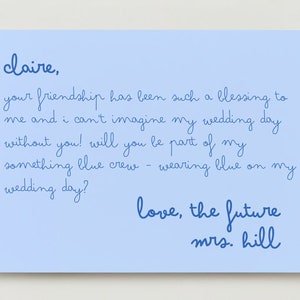 claire,
your friendship has been such a blessing to
me and i can't imagine my wedding day
without you! will you be part of my
something blue crew - wearing blue on my
wedding day?
love, the future
mrs. hill